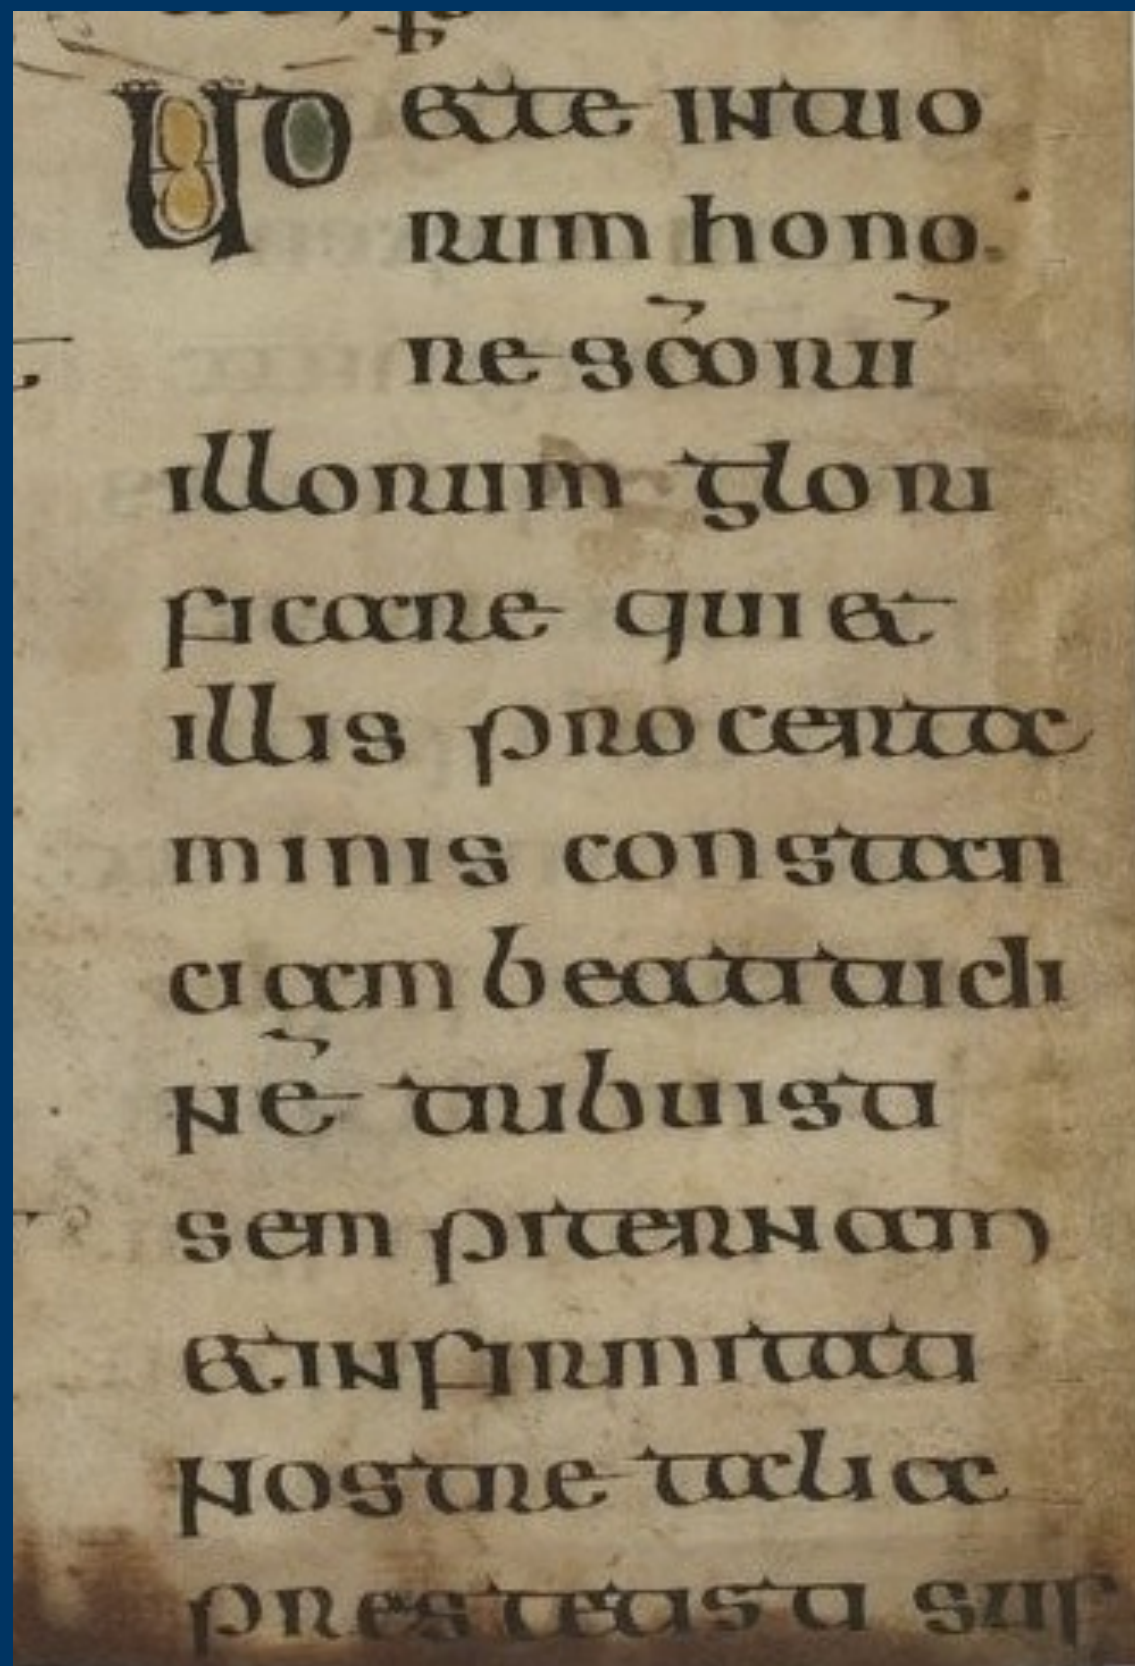 UD &te in tuo
rum hono
re scōrū
illorum glori
ficare qui &
illis pro certa
minis constan
ciam beatitudi
nē tribuisti
sempiternam
& infirmitati
nostre talia
prestetisti suf